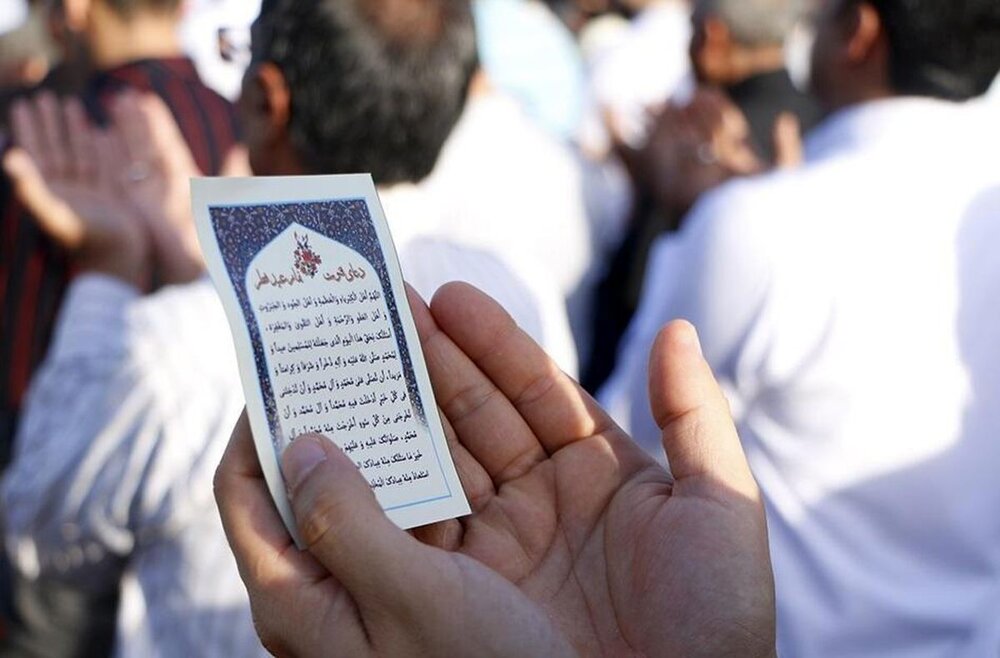 دعای قنوت نماز عید فطر
اللهم اهل الکبریاء و العظمة و اهل الجود و الجبروت
و اهل العفو و الرحمة و اهل التقوی و المغفرة،
اسئلک بحق هذا الیوم الذی جعلته للمسلمین عیداً و
لمحمد صلی الله علیه و آله ذخراً و شرفاً و کرامتاً و
مزیداً، ان تصلی علی محمد و آل محمد و ان تدخلنی
فی کل خیر ادخلت فیه محمداً و آل محمد و ان
تخرجنی من کل سوء اخرجت منه محمداً و آل
محمد، صلواتک علیه و علیهم
خیر ما سئلک منه عبادک
استعاذ منه عبادک